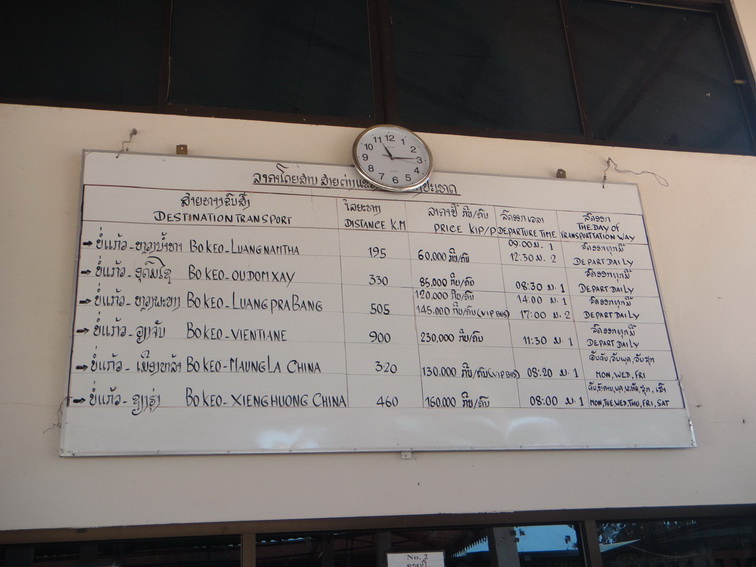 ລາຄາໂດຍສານ ສາຍຕ່າງແຂວງ
ສາຍທາງຂົນສົ່ງ ໄລຍະທາງ ລາຄາປີ້ ກີບ/ຄົນ ລົດອອກ ເວລາ ລົດອອກ
DESTINATION TRANSPORT DISTANCE K.M PRICE KIP/P DEPARTURE TIME THE DAY OF TRANSPORTTATION WAY
→ ບໍ່ແກ້ວ - ຫຼວງນ້ຳທາ BOKEO - LUANGNAMTHA 195 60,000 ກີບ/ຄົນ 09:00 ມ. 1 ລົດອອກທຸກມື້
12:30 ມ. 2 DEPART DAILY
→ ບໍ່ແກ້ວ - ອຸດົມໄຊ BOKEO - OUDOMXAY 330 85,000 ກີບ/ຄົນ 08:30 ມ. 1 ລົດອອກທຸກມື້
DEPART DAILY
→ ບໍ່ແກ້ວ - ຫຼວງພະບາງ BOKEO - LUANGPRABANG 505 120,000 ກີບ/ຄົນ 14:00 ມ. 1 ລົດອອກທຸກມື້
145,000 ກີບ/ຄົນ (VIP BUS) 17:00 ມ. 2 DEPART DAILY
→ ບໍ່ແກ້ວ - ວຽງຈັນ BOKEO - VIENTIANE 900 230,000 ກີບ/ຄົນ 11:30 ມ. 1 ລົດອອກທຸກມື້
DEPART DAILY
→ ບໍ່ແກ້ວ - ເມືອງຫລ້າ BOKEO - MAUNGLA CHINA 320 130,000 ກີບ/ຄົນ (VIP BUS) 08:20 ມ. 1 ວັນຈັນ, ວັນພຸດ, ວັນສຸກ
MON, WED, FRI
→ ບໍ່ແກ້ວ - ຊຽງຮຸ່ງ BOKEO - XIENGHUONG CHINA 460 160,000 ກີບ/ຄົນ 08:00 ມ. 1
MON, TUE, WED, THU, FRI, SAT
12
1
2
3
4
5
6
7
8
9
10
11
No. 2